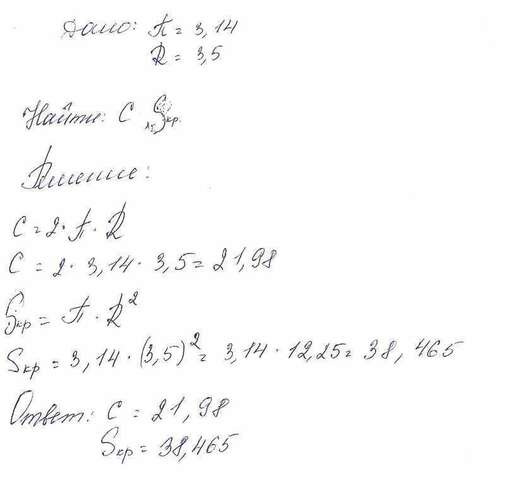 Дано: π = 3,14
R = 3,5
Найти: C, Sкр.
Решение:
C = 2 · π · R
C = 2 · 3,14 · 3,5 = 21,98
Sкр = π · R²
Sкр = 3,14 · (3,5)² = 3,14 · 12,25 = 38,465
Ответ: C = 21,98
Sкр = 38,465